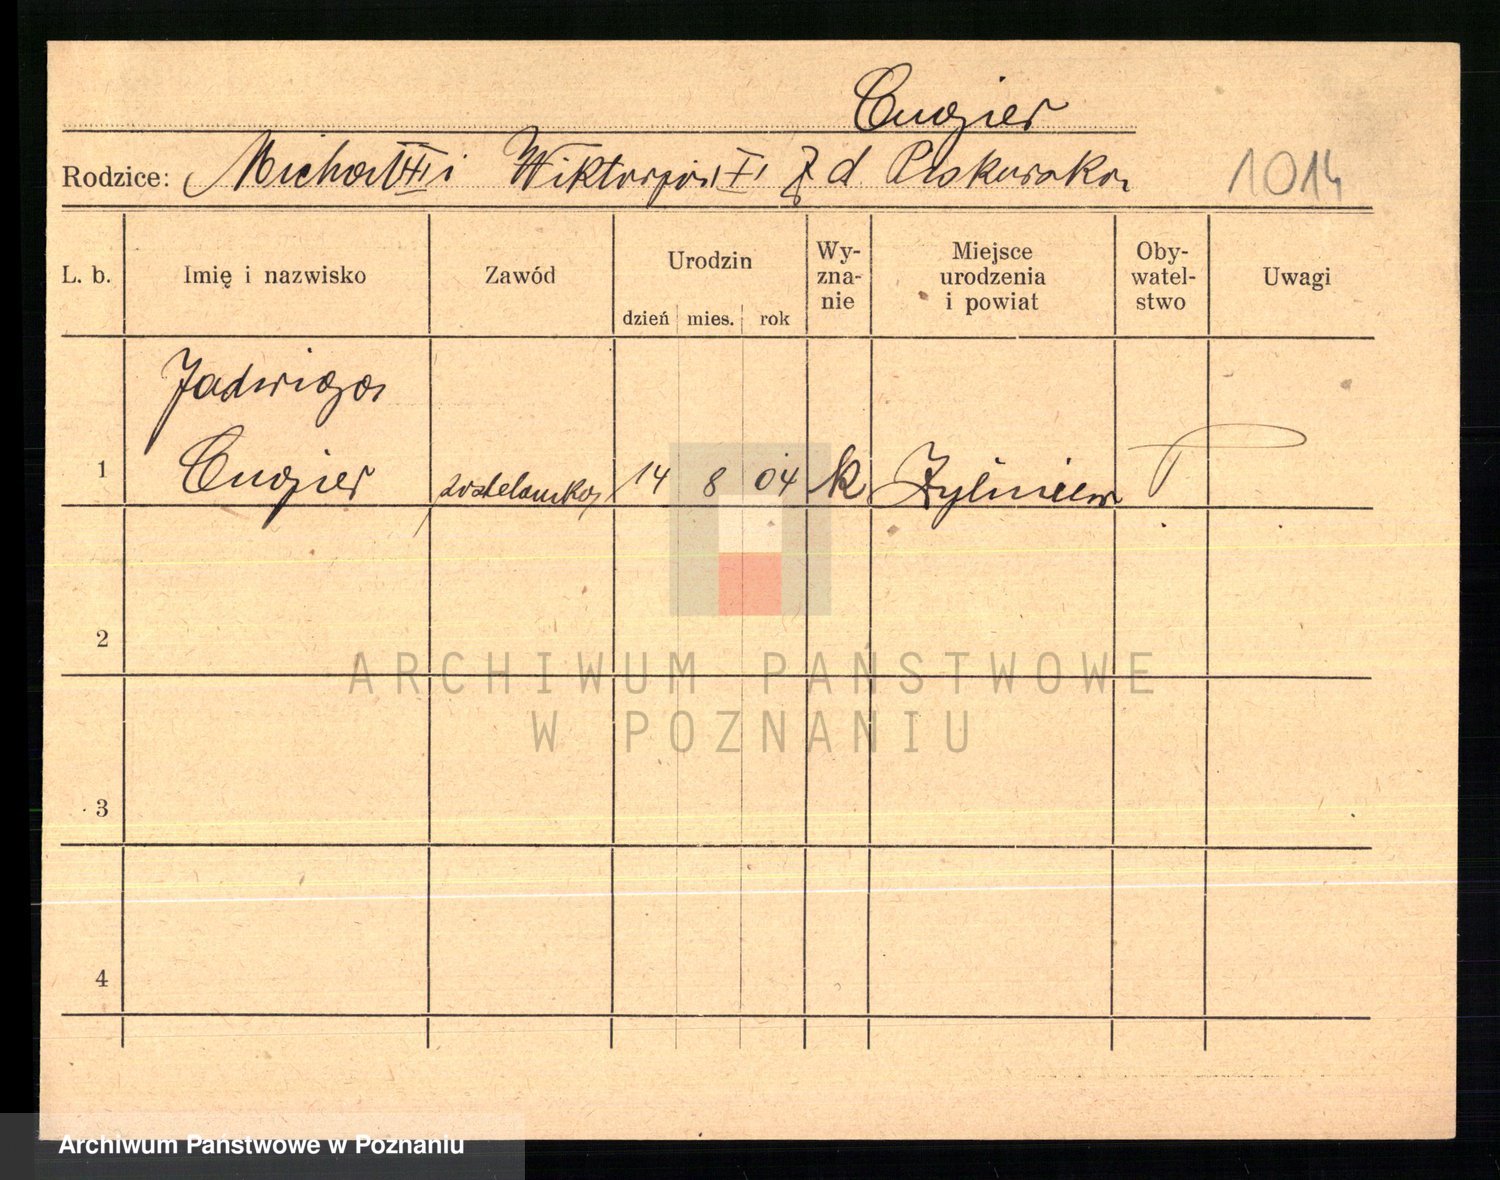 Cugier
Rodzice: Michał i Wiktorja z d. Piskurska 1014
L. b. Imię i nazwisko Zawód Urodzin Wyznanie Miejsce urodzenia i powiat Obywatelstwo Uwagi
dzień mies. rok
Jadwiga
1 Cugier 14 8 04 k P
2
3
4
ARCHIWUM PAŃSTWOWE
W POZNANIU
Archiwum Państwowe w Poznaniu